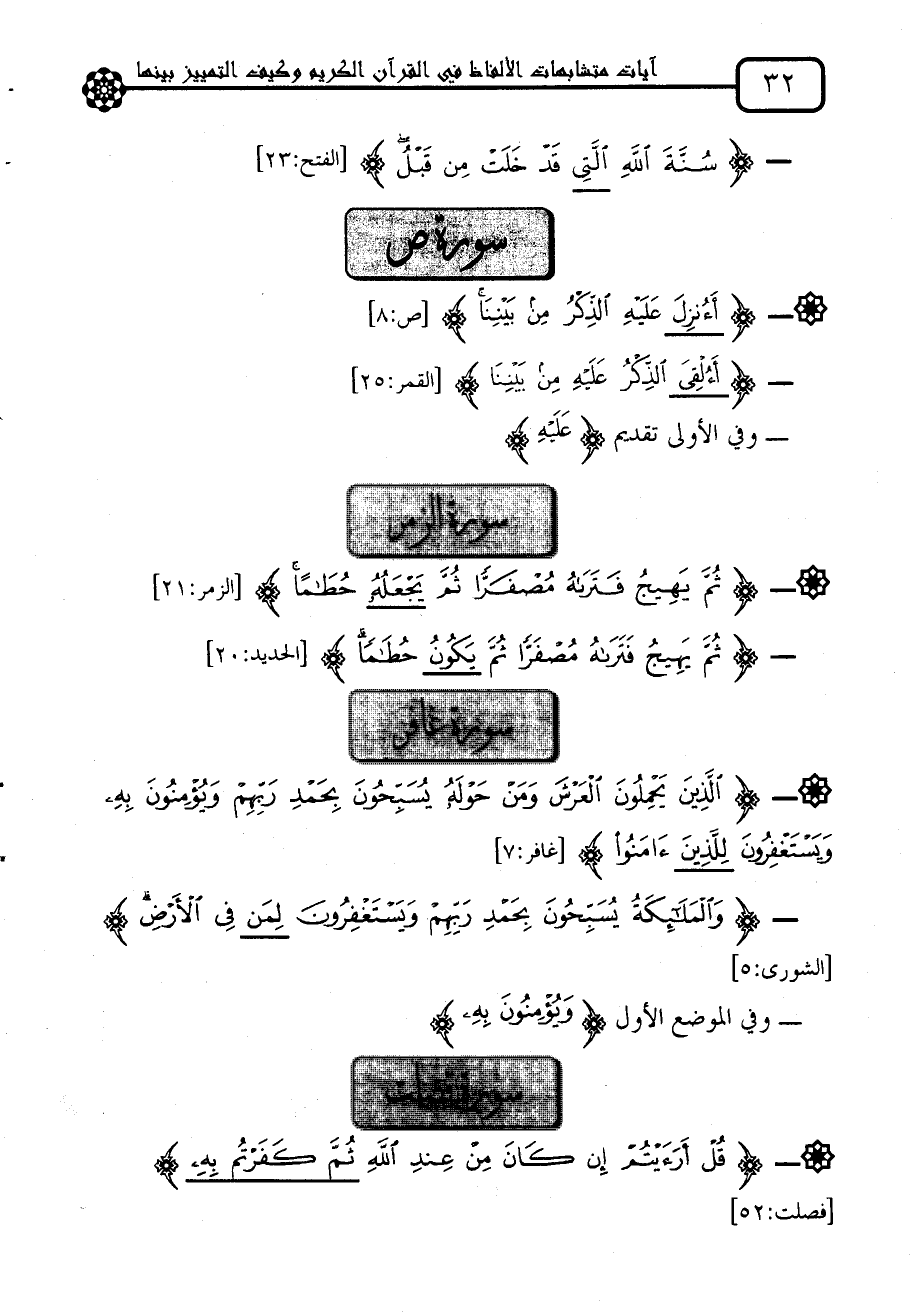 ٣٢
آيات متشابهات الألفاظ في القرآن الكريم وكيف التمييز بينها
— ﴿ سُنَّةَ ٱللَّهِ ٱلَّتِي قَدْ خَلَتْ مِن قَبْلُ ۖ ﴾ [الفتح:٢٣]
سورة ص
— ﴿ أَءُنزِلَ عَلَيْهِ ٱلذِّكْرُ مِنۢ بَيْنِنَا ۚ ﴾ [ص:٨]
— ﴿ أَءُلْقِيَ ٱلذِّكْرُ عَلَيْهِ مِنۢ بَيْنِنَا ﴾ [القمر:٢٥]
— وفي الأولى تقديم ﴿ عَلَيْهِ ﴾
سورة الزمر
— ﴿ ثُمَّ يَهِيجُ فَتَرَىٰهُ مُصْفَرًّا ثُمَّ يَجْعَلُهُۥ حُطَٰمًا ۚ ﴾ [الزمر:٢١]
— ﴿ ثُمَّ يَهِيجُ فَتَرَىٰهُ مُصْفَرًّا ثُمَّ يَكُونُ حُطَٰمًا ۖ ﴾ [الحديد:٢٠]
سورة غافر
— ﴿ ٱلَّذِينَ يَحْمِلُونَ ٱلْعَرْشَ وَمَنْ حَوْلَهُۥ يُسَبِّحُونَ بِحَمْدِ رَبِّهِمْ وَيُؤْمِنُونَ بِهِۦ
وَيَسْتَغْفِرُونَ لِلَّذِينَ ءَامَنُوا۟ ﴾ [غافر:٧]
— ﴿ وَٱلْمَلَٰٓئِكَةُ يُسَبِّحُونَ بِحَمْدِ رَبِّهِمْ وَيَسْتَغْفِرُونَ لِمَن فِى ٱلْأَرْضِ ۗ ﴾
[الشورى:٥]
— وفي الموضع الأول ﴿ وَيُؤْمِنُونَ بِهِۦ ﴾
سورة فصلت
— ﴿ قُلْ أَرَءَيْتُمْ إِن كَانَ مِنْ عِندِ ٱللَّهِ ثُمَّ كَفَرْتُم بِهِۦ ﴾
[فصلت:٥٢]